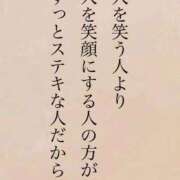 人を笑う人より
人を笑顔にする人の方が
ずっとステキな人だから